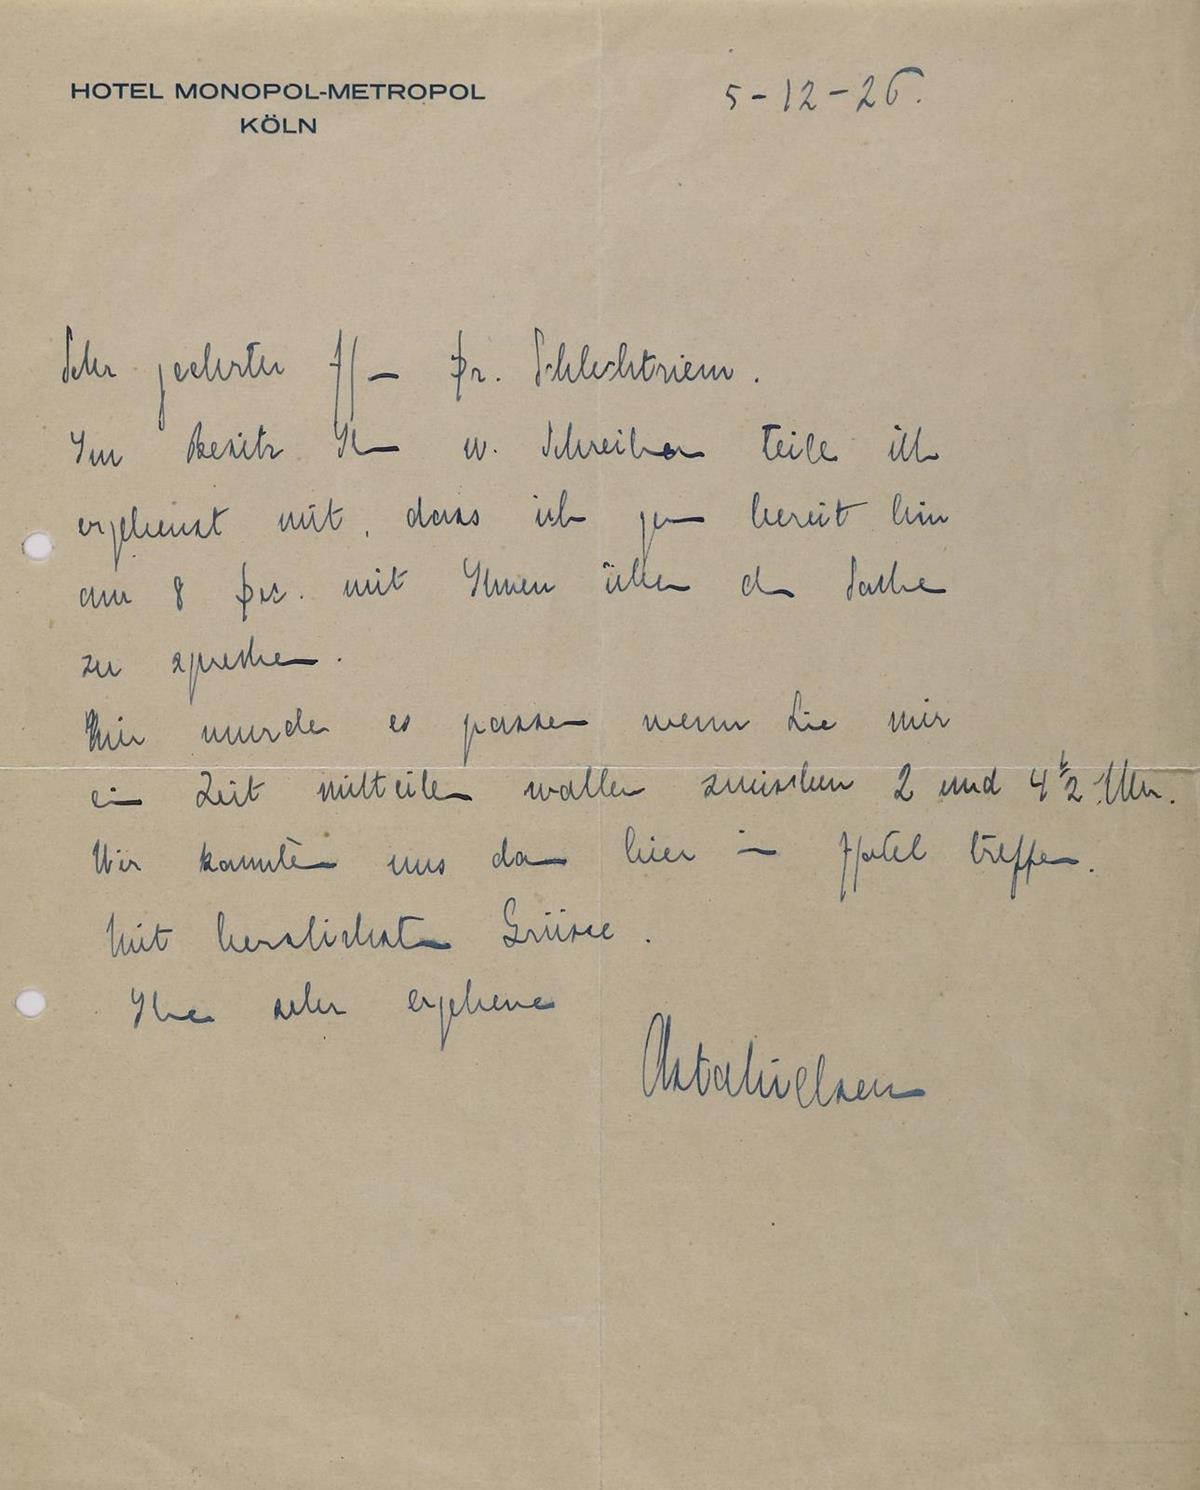 HOTEL MONOPOL-METROPOL
KÖLN
5-12-26.
Sehr geehrter Herr Dr. Schlechtriem.
Im Besitz Ihr w. Schreiben teile ich
ergebenst mit, dass ich gern bereit bin
am 8 Dec. mit Ihnen über die Sache
zu sprechen.
Mir wurde es passen wenn Sie mir
ein Zeit mitteilen wollen zwischen 2 und 4 1/2 Uhr.
Wir konnten uns dan hier in Hotel treffen.
Mit herzlichsten Grüsse.
Ihre sehr ergebene
Asta Nielsen